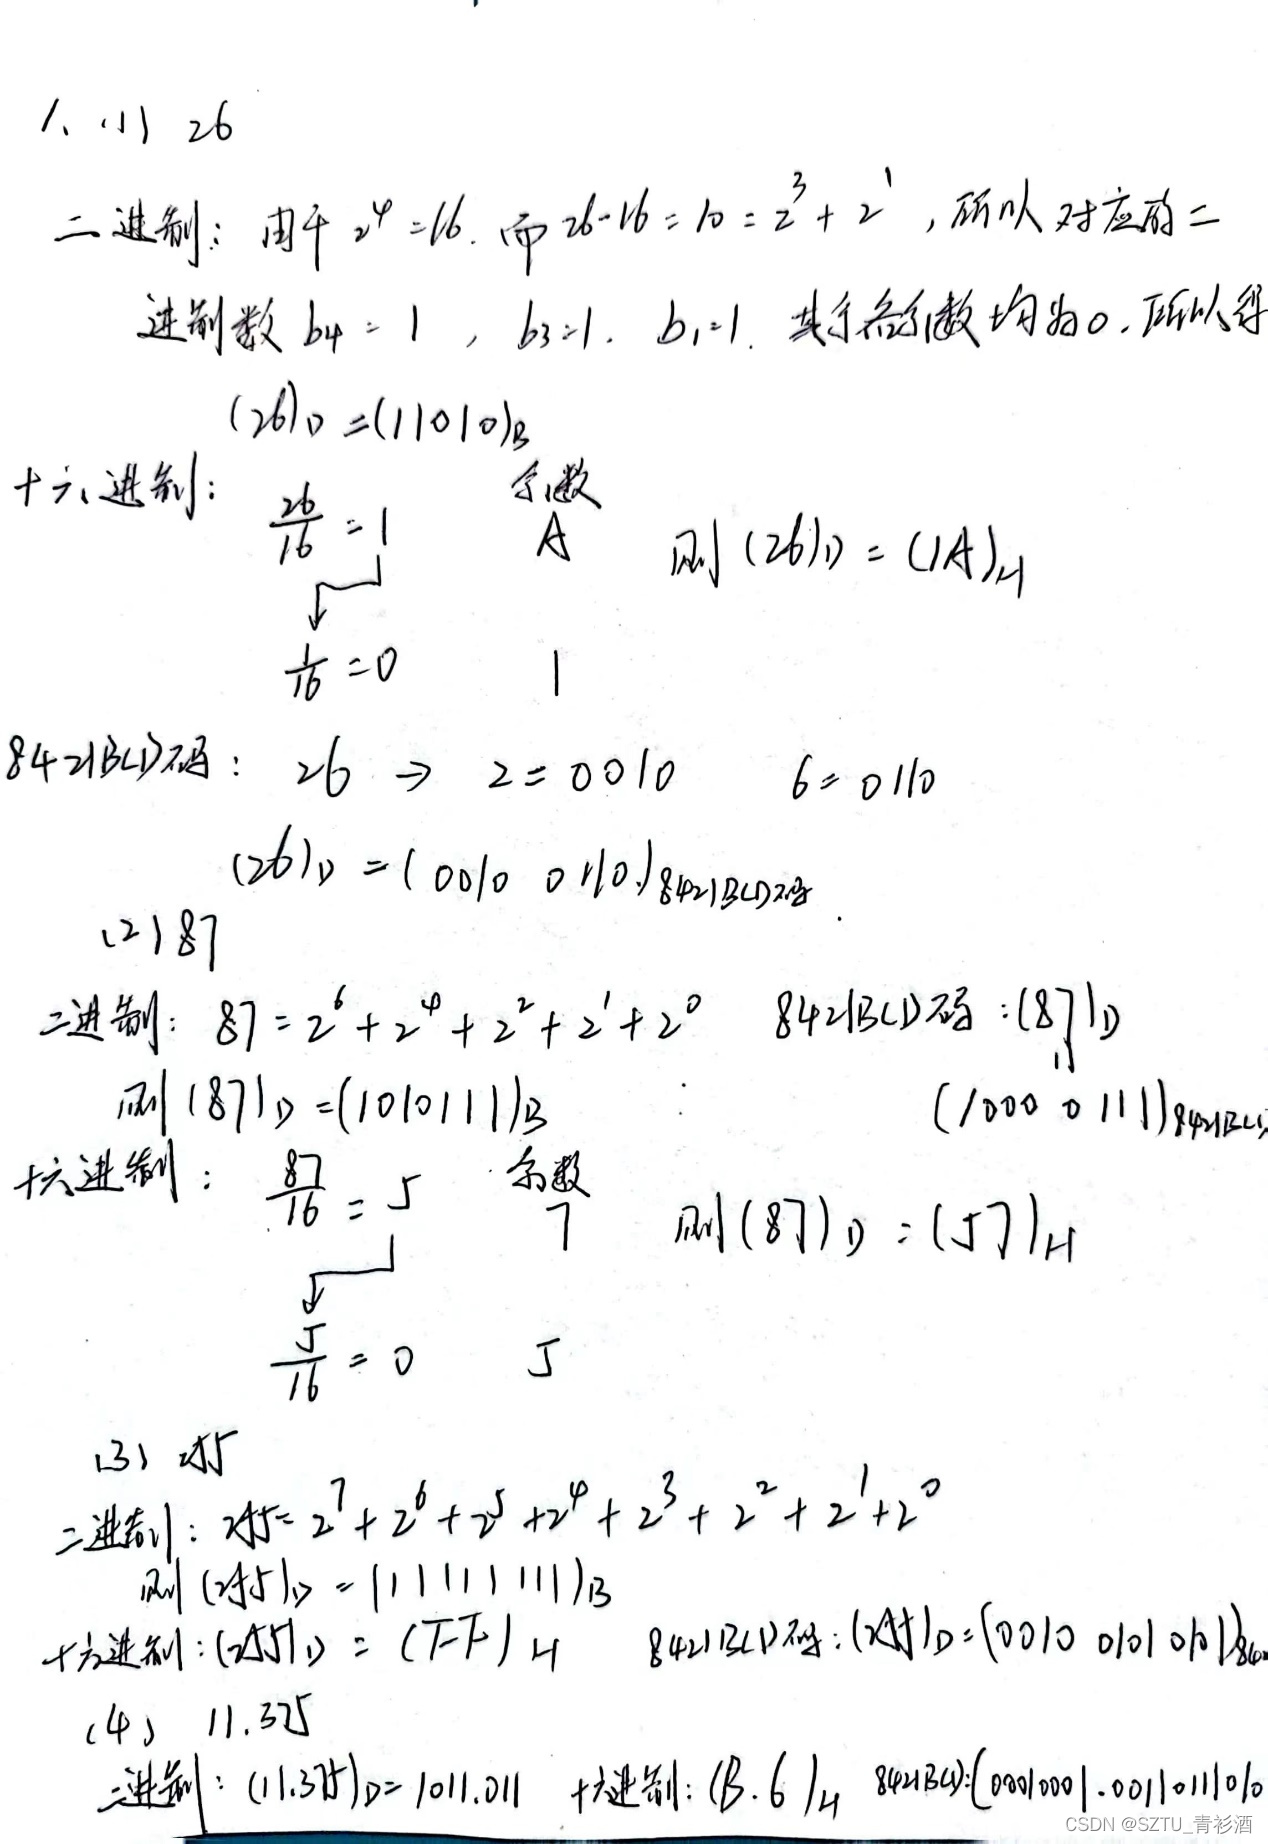 1、(1) 26
二进制：由于 2^4 = 16. 而 26-16 = 10 = 2^3 + 2^1 , 所以对应的二
进制数 b4 = 1 , b3=1. b1=1. 其余各系数均为0. 所以得
(26)D = (11010)B
十六进制： 余数
26/16 = 1 A 则 (26)D = (1A)H
1/16 = 0 1
8421BCD码： 26 → 2 = 0010 6 = 0110
(26)D = (0010 0110)8421BCD码
(2) 87
二进制：87 = 2^6 + 2^4 + 2^2 + 2^1 + 2^0 8421BCD码：(87)D
则 (87)D = (1010111)B (1000 0111)8421BCD
十六进制： 87/16 = 5 余数 7 则 (87)D = (57)H
5/16 = 0 5
(3) 255
二进制：255 = 2^7 + 2^6 + 2^5 + 2^4 + 2^3 + 2^2 + 2^1 + 2^0
则 (255)D = (11111111)B
十六进制：(255)D = (FF)H 8421BCD码：(255)D = (0010 0101 0101)842
(4) 11.375
二进制：(11.375)D = 1011.011 十六进制：(B.6)H 8421BCD：(00010001.00110111010
CSDN @SZTU_青衫酒